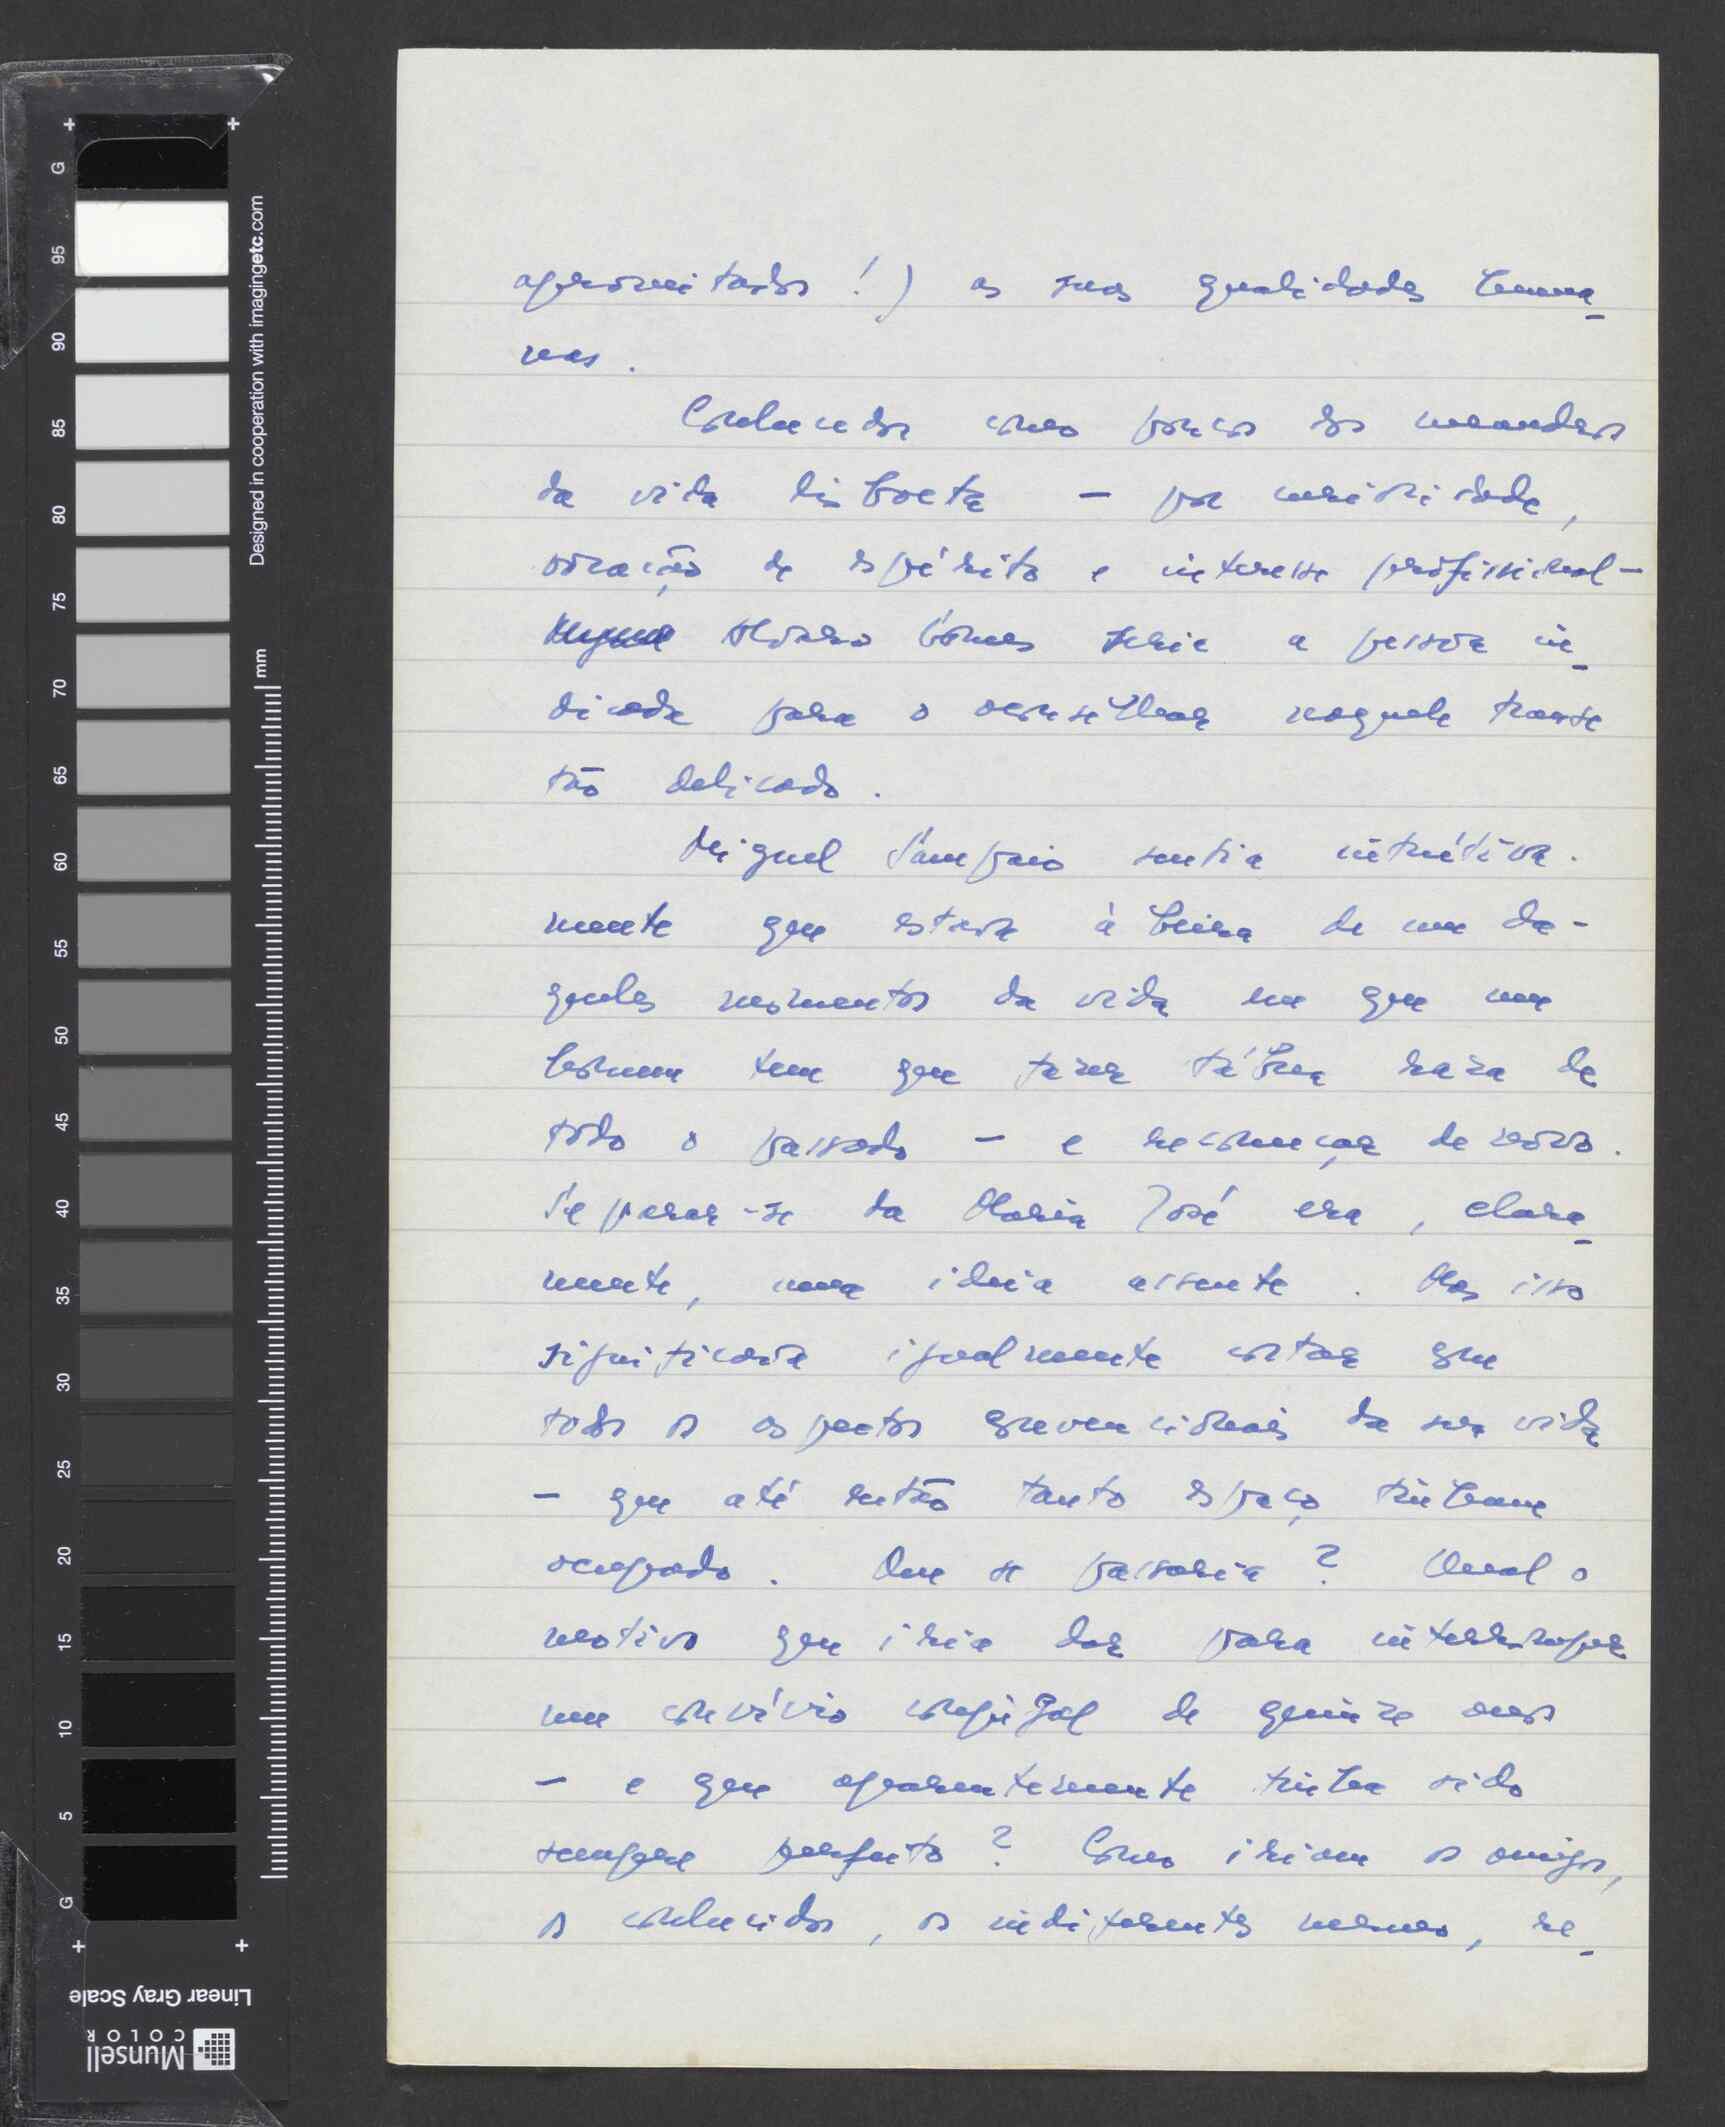 aproveitados!) as suas qualidades huma-
nas.
Conhecedor como poucos dos meandros
da vida lisboeta — por curiosidade,
vocação de espírito e interesse profissional —
Álvaro Gomes seria a pessoa in-
dicada para o aconselhar naquele transe
tão delicado.
Miguel Sampaio sentia intuitiva-
mente que estava à beira de um da-
queles momentos da vida em que um
homem tem que fazer tábua rasa de
todo o passado — e recomeçar de novo.
Separar-se da Maria José era, clara-
mente, uma ideia assente. Mas isso
significava igualmente cortar em
todos os aspectos convencionais da sua vida
— que até então tanto espaço tinham
ocupado. Que se passaria? Qual o
motivo que iria dar para interromper
um convívio conjugal de quinze anos
— e que aparentemente tinha sido
sempre perfeito? Como iriam os amigos,
os conhecidos, os indiferentes mesmo, re-
Designed in cooperation with imagingetc.com
mm
G
95
90
85
80
75
70
65
60
55
50
45
40
35
30
25
20
15
10
5
G
Linear Gray Scale
Munsell
COLOR